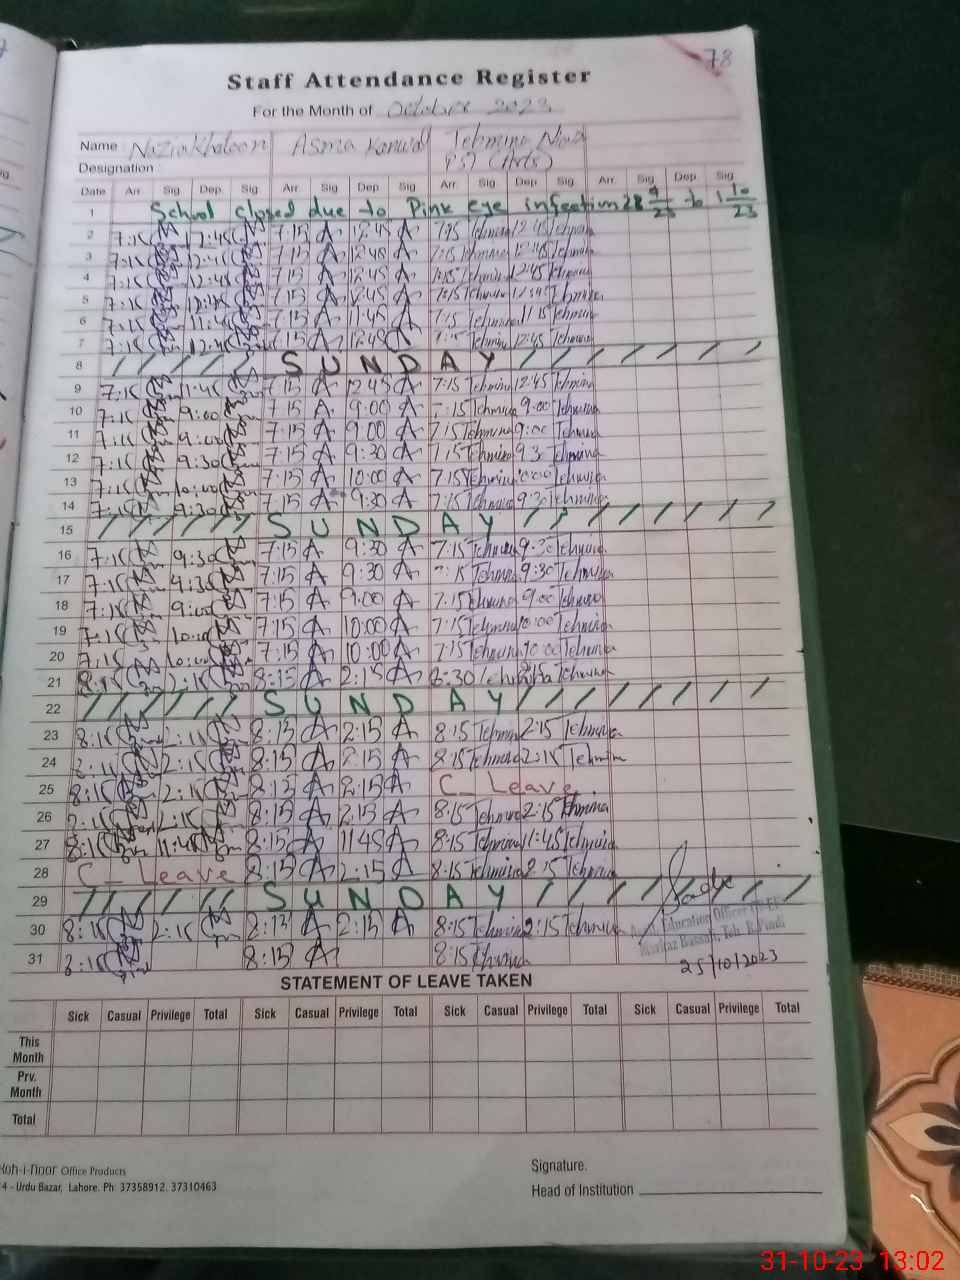 78
Staff Attendance Register
For the Month of October 2023
Name Nazia Khatoon Asma Kanwal Tehmina
Designation PST (Arts)
Date Arr Sig Dep Sig Arr Sig Dep Sig Arr. Sig. Dep Sig. Arr. Sig Dep Sig
1 School closed due to Pink eye infection 28 9/23 to 1 10/23
2 7:15 12:45 7:15 A 12:45 A 7:15 Tehmina 12:45 Tehmina
3 7:15 12:45 7:15 A 12:45 A 7:15 Tehmina 12:45 Tehmina
4 7:15 12:45 7:15 A 12:45 A 7:15 Tehmina 12:45 Tehmina
5 7:15 12:45 7:15 A 12:45 A 7:15 Tehmina Tehmina
6 7:15 11:45 7:15 A 11:45 A 7:15 Tehmina Tehmina
7 7:15 12:45 7:15 A 12:45 A Tehmina 12:45 Tehmina
8 S U N D A Y
9 7:15 7:15 A 12:45 A 7:15 Tehmina 12:45 Tehmina
10 7:15 9:00 7:15 A 9:00 A 7:15 Tehmina 9:00 Tehmina
11 7:15 9:00 7:15 A 9:00 A 7:15 Tehmina 9:00 Tehmina
12 7:15 9:30 7:15 A 9:30 A 7:15 Tehmina 9:30 Tehmina
13 7:15 10:00 7:15 A 10:00 A 7:15 Tehmina 10:00 Tehmina
14 7:15 9:30 7:15 A 9:30 A 7:15 Tehmina 9:30 Tehmina
15 S U N D A Y
16 7:15 9:30 7:15 A 9:30 A 7:15 Tehmina 9:30 Tehmina
17 7:15 7:15 A 9:30 A Tehmina 9:30 Tehmina
18 7:15 9:00 7:15 A 9:00 A 7:15 Tehmina 9:00 Tehmina
19 7:15 7:15 A 10:00 A 7:15 Tehmina 10:00 Tehmina
20 7:15 10:00 7:15 A 10:00 A 7:15 Tehmina 10:00 Tehmina
21 8:15 2:15 8:15 A 2:15 A 8:30 Tehmina Tehmina
22 S U N D A Y
23 8:15 2:15 8:15 A 2:15 A 8:15 Tehmina 2:15 Tehmina
24 8:15 2:15 8:15 A 2:15 A 8:15 Tehmina 2:15 Tehmina
25 8:15 2:15 8:15 A 2:15 A C_ Leave
26 8:15 2:15 8:15 A 2:15 A 8:15 Tehmina 2:15 Tehmina
27 8:15 11:45 8:15 A 11:45 A 8:15 Tehmina 11:45 Tehmina
28 C_ Leave 8:15 A 2:15 A 8:15 Tehmina 2:15 Tehmina
29 S U N D A Y
30 8:15 2:15 8:15 A 2:15 A 8:15 Tehmina 2:15 Tehmina
31 8:15 8:15 A 8:15 Tehmina
Education Officer
Markaz Teh. R.Pindi
25/10/2023
STATEMENT OF LEAVE TAKEN
Sick Casual Privilege Total Sick Casual Privilege Total Sick Casual Privilege Total Sick Casual Privilege Total
This Month
Prv. Month
Total
Koh-i-noor Office Products
4 - Urdu Bazar, Lahore. Ph: 37358912. 37310463
Signature.
Head of Institution
31-10-23 13:02